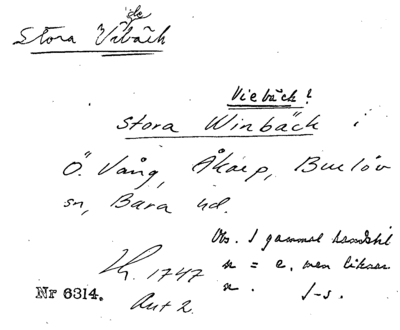 de
Stora Vibäck
Viebäck!
Stora Winbäck i
Ö. Vång, Åkarp, Burlöv
sn, Bara hd.
Obs. I gammal handstil
n = e, men liknar
n. J-s.
Lh. 1747
Akt 2.
Nr 6314.